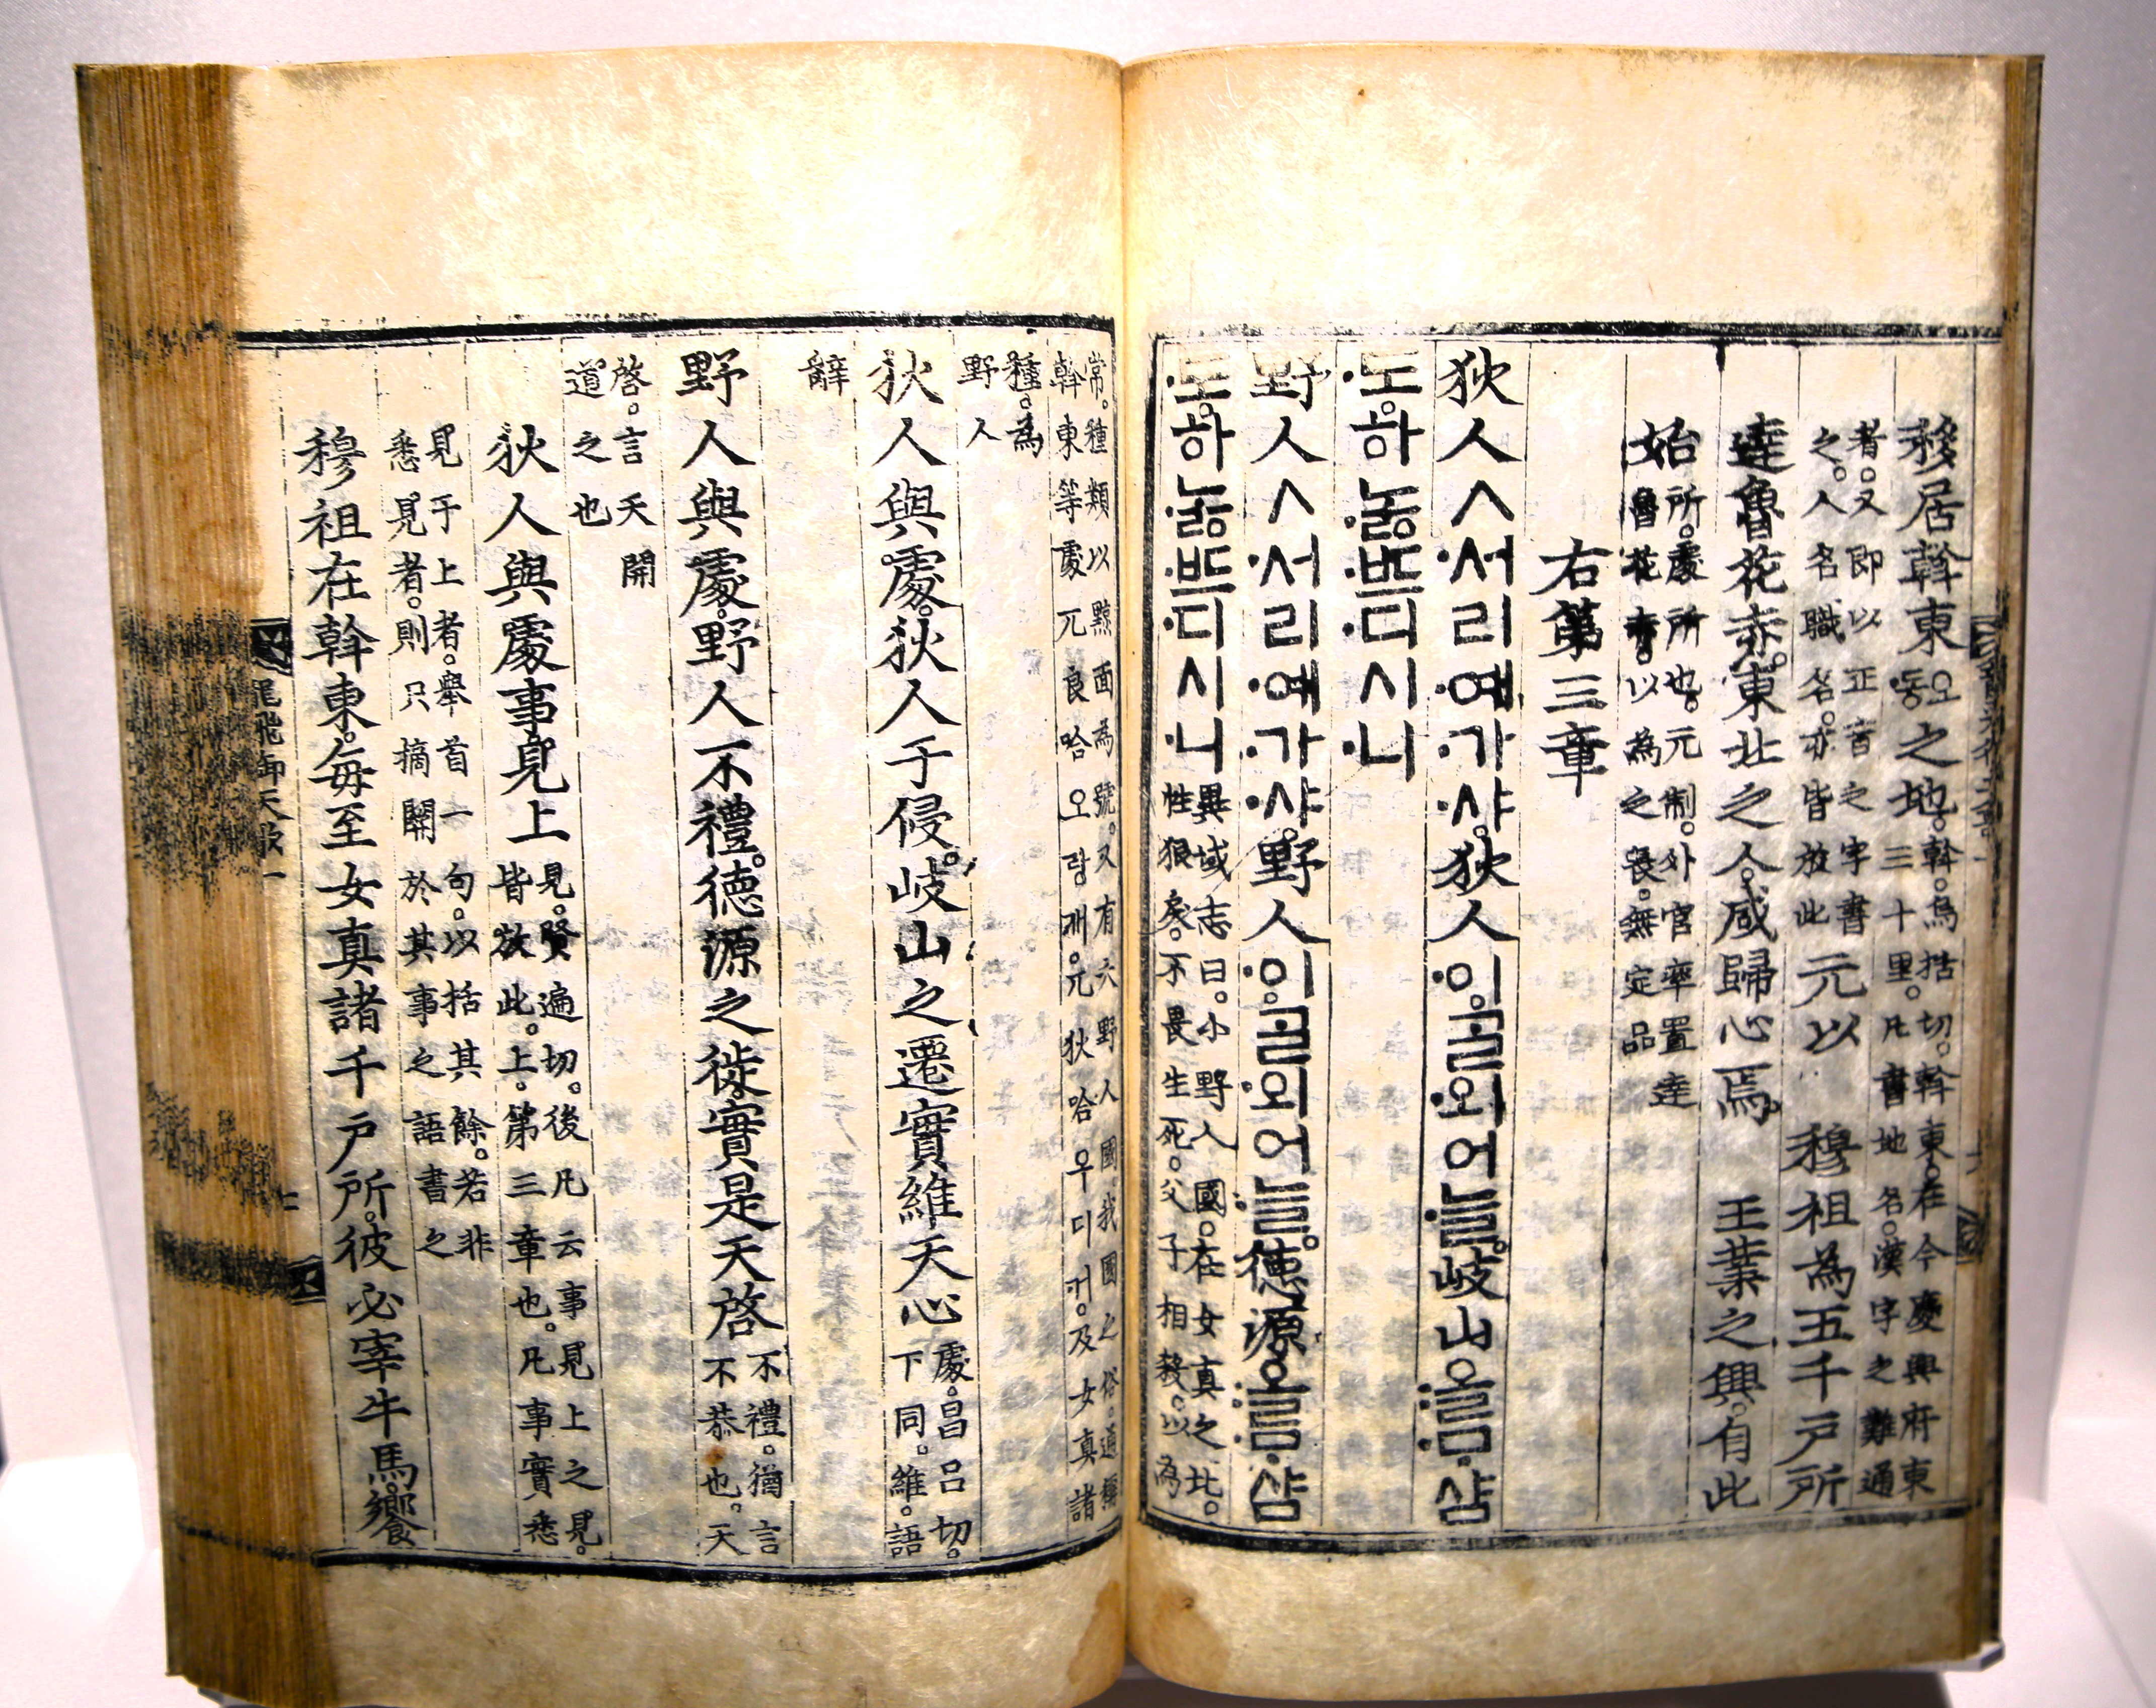 移居斡東오동之地。斡。烏括切。斡東。在今慶興府東
三十里。凡書地名。漢字之難通
者。又即以正音之字書
之。人名職名。亦皆放此
元以 穆祖為五千戶所
達魯花赤。東北之人。咸歸心焉。 王業之興。自此
始所。處所也。元制。外官率置達
魯花赤。以為之長。無定品
右第三章
狄人ㅅ서리예가샤。狄人이ᄀᆞᆯ외어늘。岐山올ᄆᆞ샴
도。하ᄂᆞᇙᄠᅳ디시니
野人ㅅ서리예가샤。野人이ᄀᆞᆯ외어늘。德源올ᄆᆞ샴
도。하ᄂᆞᇙᄠᅳ디시니異域志曰。小野人國。在女真之北。
性狠戾。不畏生死。父子相殺。以為
常。種類以黥面為號。又有六野人國。我國之俗。通稱
斡東等處兀良哈오랑캐。兀狄哈우디거。及女真諸
種。為
野人
狄人與處。狄人于侵。岐山之遷。實維天心處。昌呂切。
下同。維。語
辭
野人與處。野人不禮。德源之徙。實是天啓不禮。猶言
不恭也。天
啓。言天開
道之也
狄人與處事。見上見。賢遍切。後凡云事見上之見。
皆放此。上。第三章也。凡事實悉
見于上者。舉首一句。以括其餘。若非
悉見者。則只摘關於其事之語書之
穆祖在斡東。每至女真諸千戶所。彼必宰牛馬。饗
龍飛御天歌一